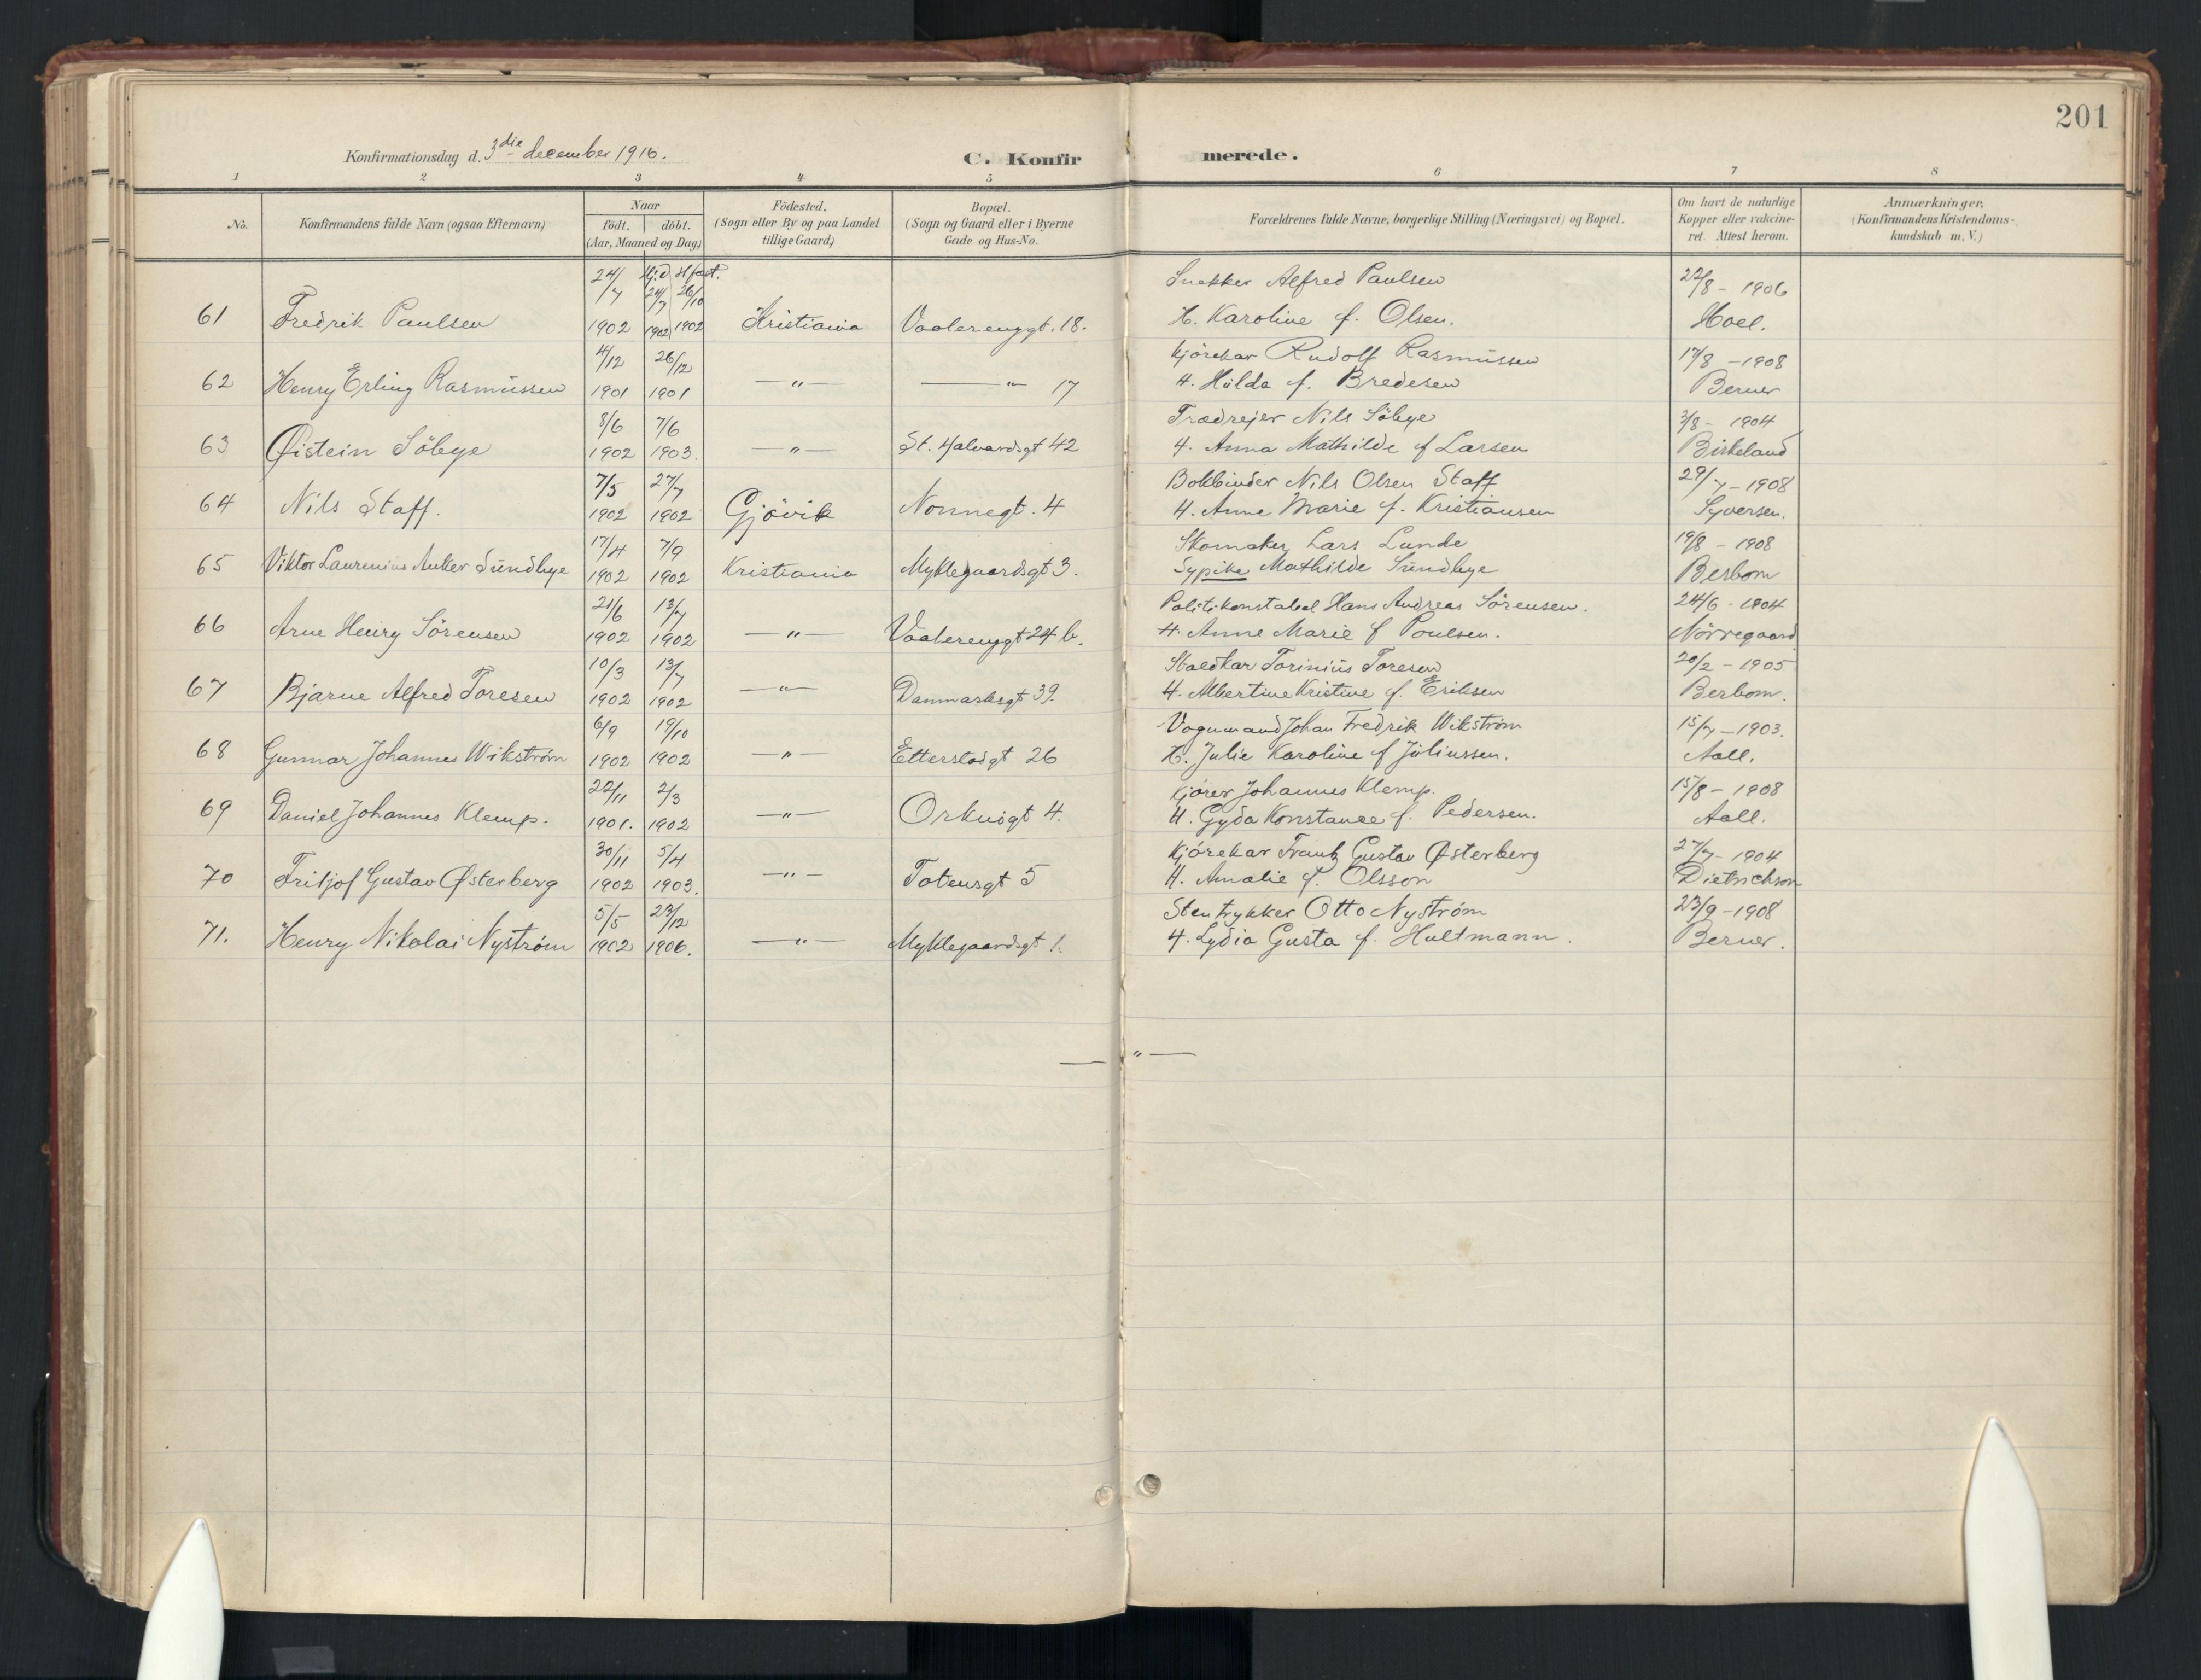 201
Konfirmationsdag d. 3die december 1916.
C. Konfirmerede.
1 2 3 4 5 6 7 8
No. Konfirmandens fulde Navn (ogsaa Efternavn) Naar födt. döbt. (Aar, Maaned og Dag) Födested. (Sogn eller By og paa Landet tillige Gaard) Bopæl. (Sogn og Gaard eller i Byerne Gade og Hus-No. Forældrenes fulde Navne, borgerlige Stilling (Næringsvei) og Bopæl. Om havt de naturlige Kopper eller vakcineret. Attest herom. Anmærkninger, (Konfirmandens Kristendomskundskab m. V.)
24/7 Hjd. Stfæst. 24/7 26/10 Snekker Alfred Paulsen 22/8 - 1906
61 Fredrik Paulsen 1902 1902 1902 Kristiania Vaalerenggt. 18. H. Karoline f. Olsen. Hoel.
4/12 26/12 Kjörekar Rudolf Rasmussen 17/8 - 1908
62 Henry Erling Rasmussen 1901 1901 —"— —"— 17 H. Hulda f. Bredesen Berner
8/6 7/6 Trædrejer Nils Söbye 3/8 - 1904
63 Øistein Söbye 1902 1903. —"— St. Halvardsgt 42 H. Anna Mathilde f Larsen Birkeland
7/5 27/7 Bokbinder Nils Olsen Staff 29/7 - 1908
64 Nils Staff. 1902 1902 Gjövik Nonnegt. 4 H. Anne Marie f. Kristiansen Syversen.
17/4 7/9 Skomaker Lars Lunde 19/8 - 1908
65 Viktor Laurenius Anker Sundbye 1902 1902 Kristiania Myklegaardsgt 3. Sypike Mathilde Sundbye Berbom
21/6 13/7 Politikonstabel Hans Andreas Sörensen. 24/6 - 1904
66 Arne Henry Sörensen 1902 1902 —"— Vaalerenggt 24 b. H. Anne Marie f Poulsen. Nörregaard
10/3 13/7 Staldkar Torinius Toresen 20/2 - 1905
67 Bjarne Alfred Toresen 1902 1902 —"— Danmarksgt 39. H. Albertine Kristine f. Eriksen Berbom.
6/9 19/10 Vognmand Johan Fredrik Wikström 15/7 - 1903.
68 Gunnar Johannes Wikström 1902 1902 —"— Etterstadgt 26 H. Julie Karoline f Juliussen. Aall.
22/11 2/3 Kjörer Johannes Klemp. 15/8 - 1908
69 Daniel Johannes Klemp. 1901. 1902 —"— Orknögt 4. H. Gyda Konstance f. Pedersen. Aall.
30/11 5/4 Kjörekar Frantz Gustav Østerberg 27/7 - 1904
70 Fritjof Gustav Østerberg 1902 1903. —"— Totensgt 5 H. Amalie f. Olsson Dietrichson
5/5 23/12 Stentrykker Otto Nyström 23/9 - 1908
71. Henry Nikolai Nyström 1902 1906. —"— Myklegaardsgt 1. H. Lydia Gusta f. Hultmann. Berner.
—"—